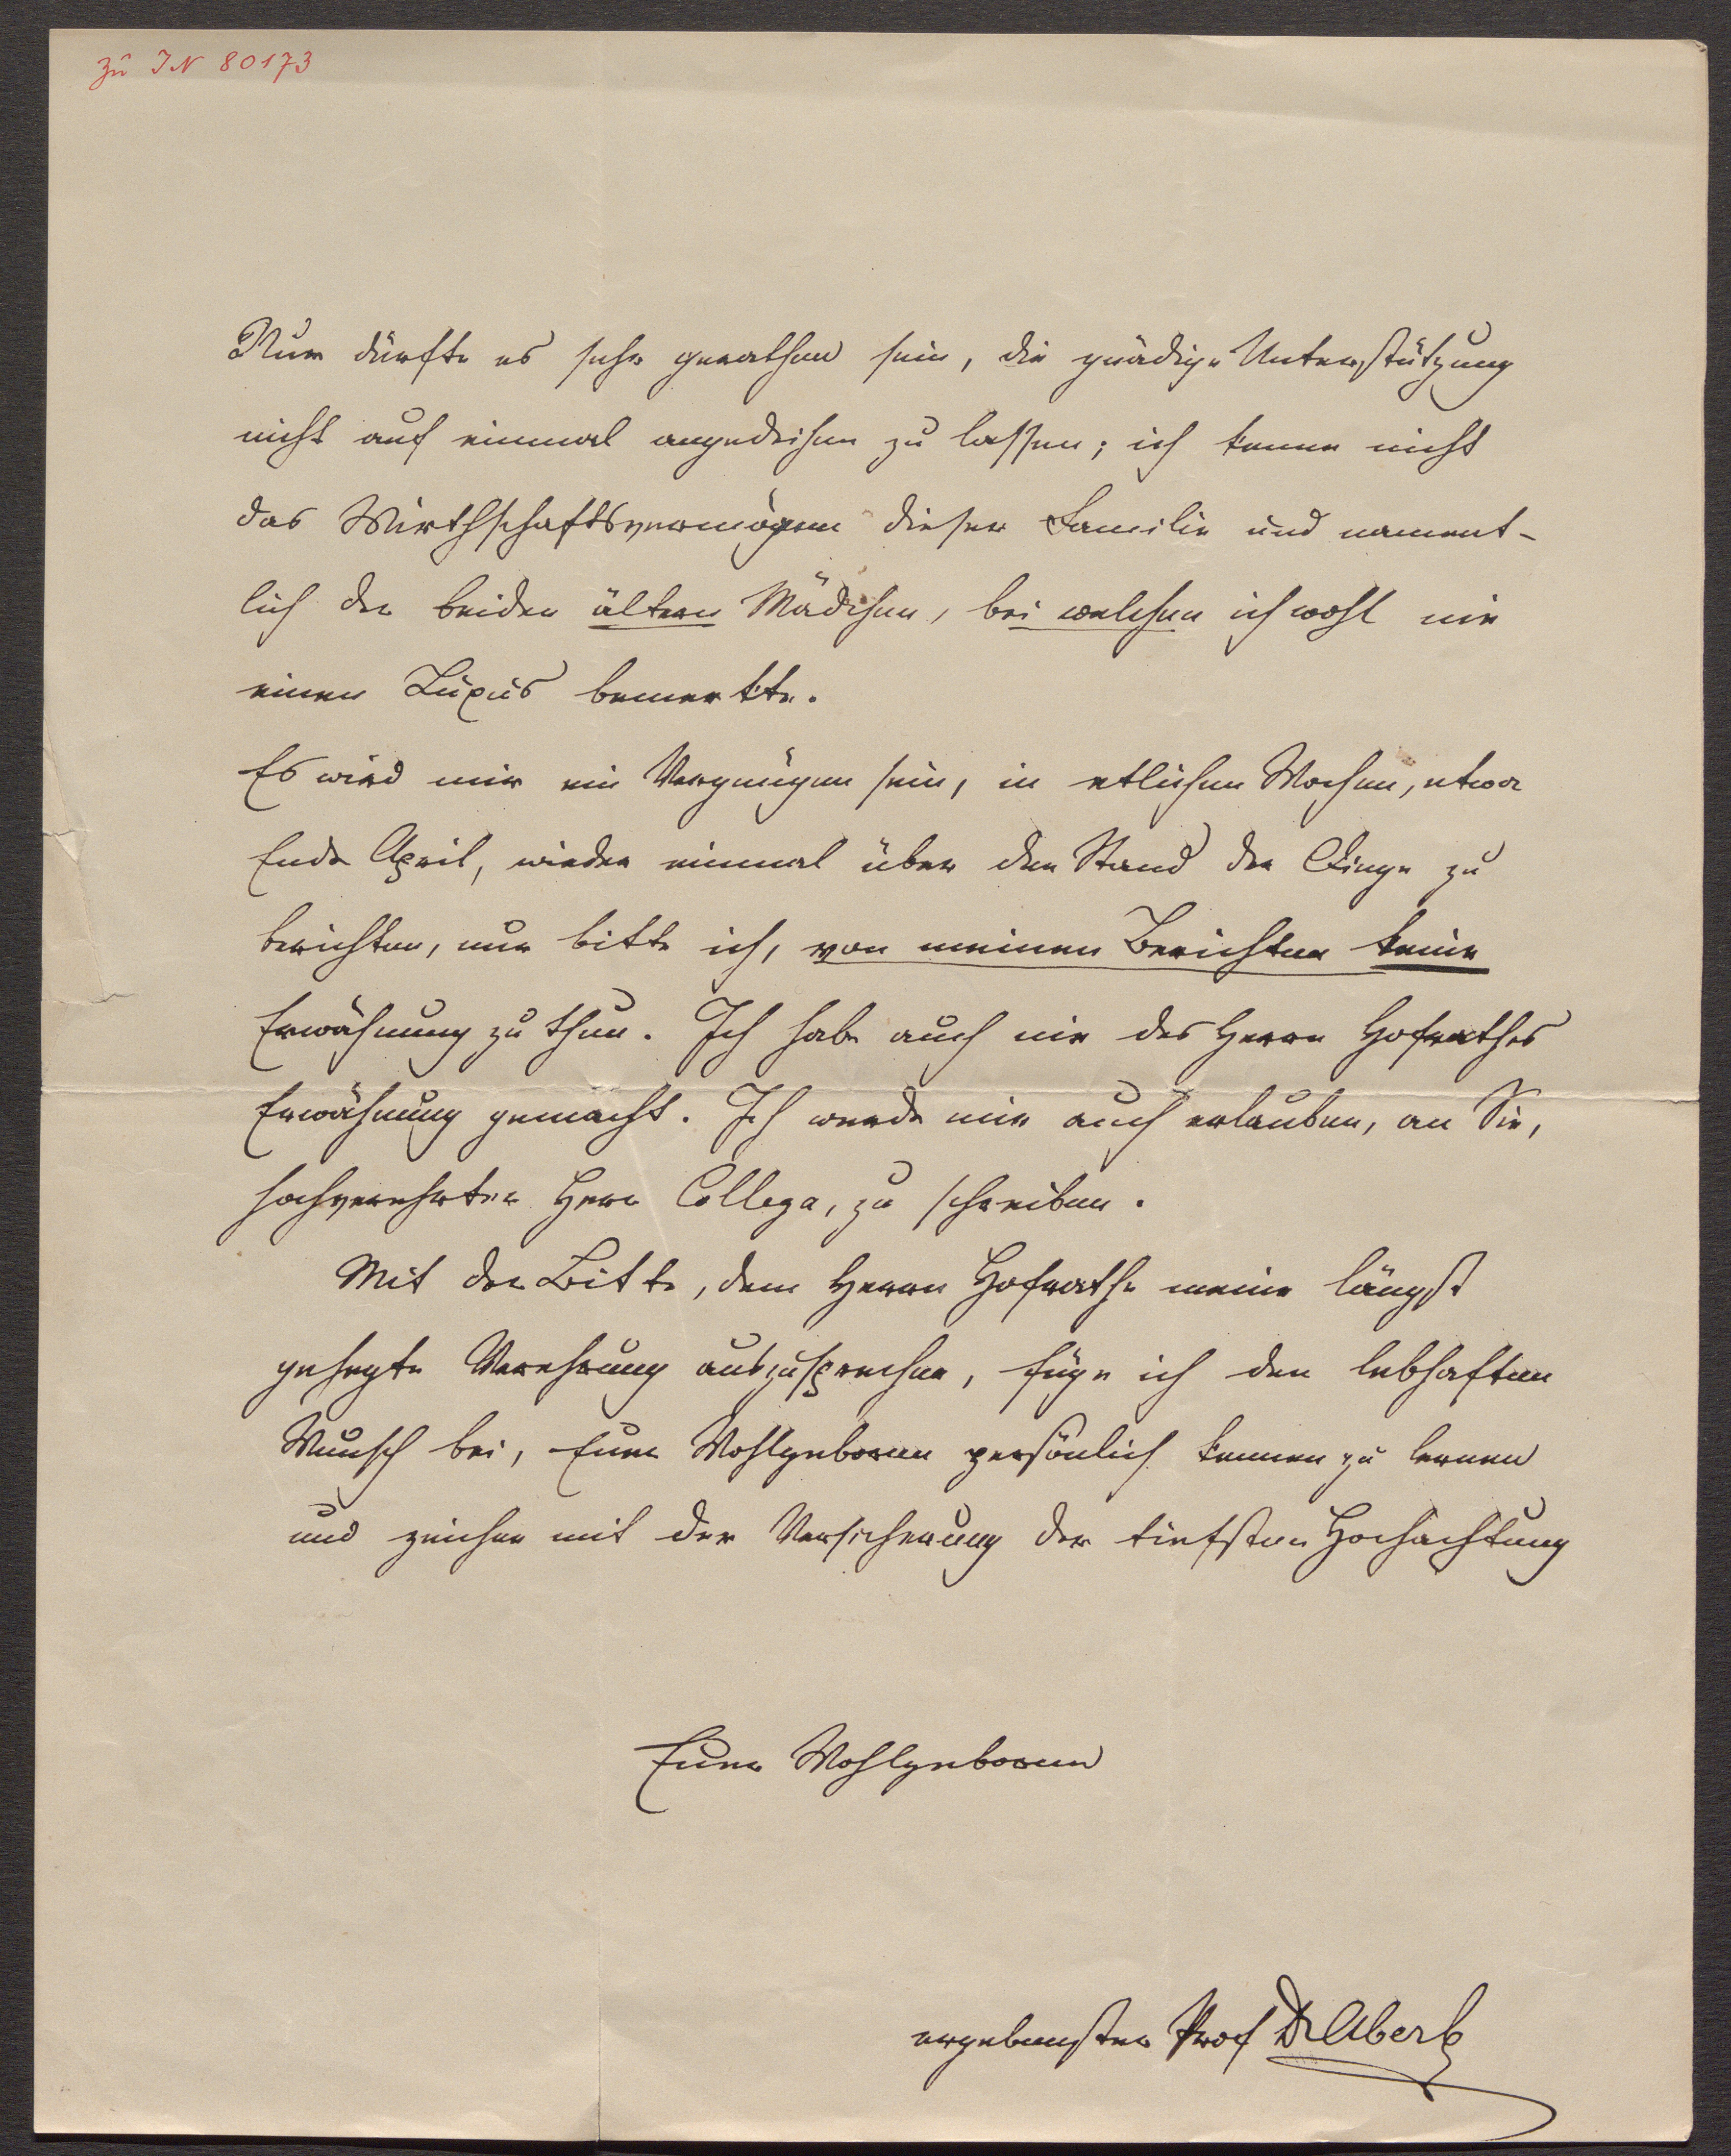 zu IN 80173
Nur dürfte es sehr gerathen sein, die gnädige Unterstützung
nicht auf einmal angedeihen zu lassen; ich kenne nicht
das Wirthschaftsvermögen dieser Familie und nament-
lich der beiden ältern Mädchen, bei welchen ich wohl nie
einen Luxus bemerkte.
Es wird mir ein Vergnügen sein, in etlichen Wochen, etwa
Ende April, wieder einmal über den Stand der Dinge zu
berichten, nur bitte ich, von meinen Berichten keine
Erwähnung zu thun. Ich habe auch nie des Herrn Hofrathes
Erwähnung gemacht. Ich werde mir auch erlauben, an Sie,
hochverehrter Herr Collega, zu schreiben.
Mit der Bitte, dem Herrn Hofrathe meine längst
gehegte Verehrung auszusprechen, füge ich den lebhaften
Wunsch bei, Euer Wohlgeboren persönlich kennen zu lernen
und zeichne mit der Versicherung der tiefsten Hochachtung
Euer Wohlgeboren
ergebenster Prof Dr Aberle